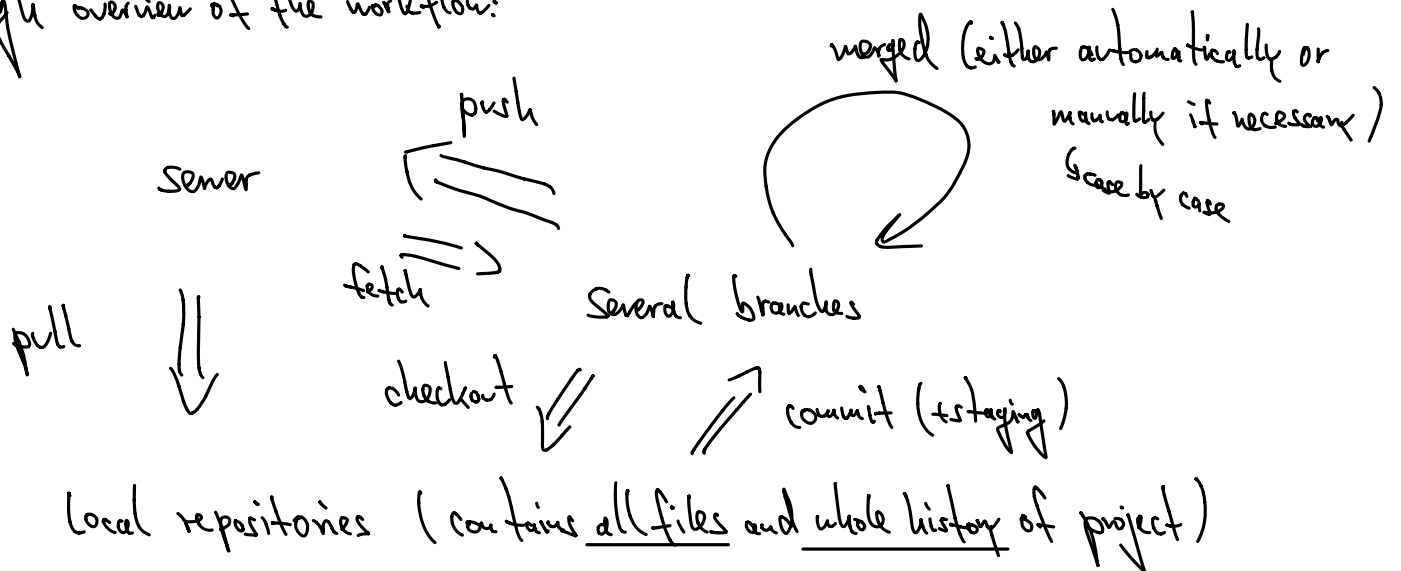 overview of the workflow:
merged (either automatically or
manually if necessary)
↳ case by case
push
server
fetch
several branches
pull
checkout
commit (+staging)
local repositories (contains all files and whole history of project)